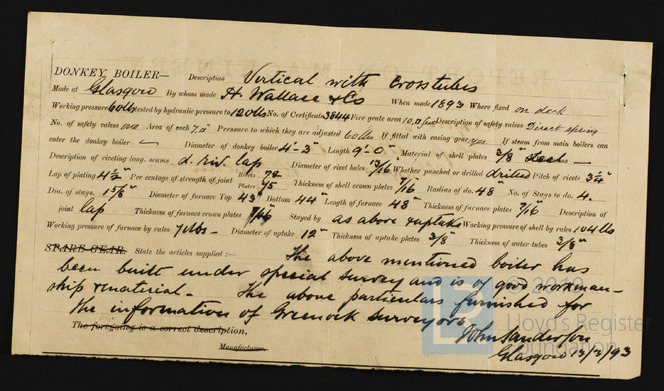 DONKEY BOILER— Description Vertical with Crosstubes
Made at Glasgow By whom made H. Wallace & Co When made 1893 Where fixed on deck
Working pressure 60lbs tested by hydraulic pressure to 120lbs No. of Certificate 3844 Fire grate area Description of safety valves Direct spring
No. of safety valves one Area of each 7.0" Pressure to which they are adjusted 60lbs If fitted with easing gear yes If steam from main boilers can
enter the donkey boiler — Diameter of donkey boiler 4'-3" Length 9'-0" Material of shell plates Thickness 3/8"
Description of riveting long. seams d. riv. lap Diameter of rivet holes 13/16 Whether punched or drilled drilled Pitch of rivets
Lap of plating 4½ Per centage of strength of joint Rivets 72 Plates 75 Thickness of shell crown plates 7/16 Radius of do. 48" No. of Stays to do. 4.
Dia. of stays. 1 5/8" Diameter of furnace Top 43" Bottom 44" Length of furnace 48" Thickness of furnace plates 7/16" Description of
joint lap Thickness of furnace crown plates 7/16 Stayed by as above & uptake Working pressure of shell by rules 104 lb
Working pressure of furnace by rules 71lbs— Diameter of uptake 12" Thickness of uptake plates 3/8" Thickness of water tubes 3/8"
SPARE GEAR. State the articles supplied:— The above mentioned boiler has
been built under special survey and is of good workman—
ship & material. The above particulars furnished for
the information of Greenock surveyors
The foregoing is a correct description,
John Sanderson
Manufacturer.
Glasgow 13/3/93
Lloyd's Register
Foundation